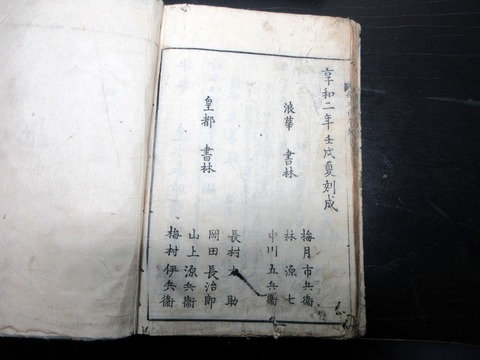 享和二年壬戌夏刻成
浪華 書林
梅月市兵衞
林 源七
中川五兵衞
皇都 書林
長村 助
岡田長治郎
山上源兵衞
梅村伊兵衞